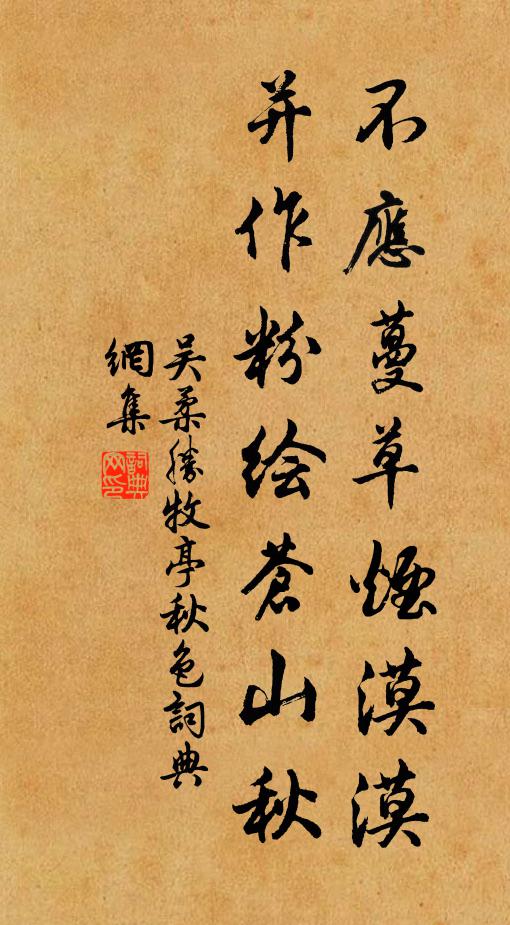 不應蔓草煙漠漠
并作粉绘蒼山秋
吴柔勝牧亭秋色詞典
網集
詞典網印